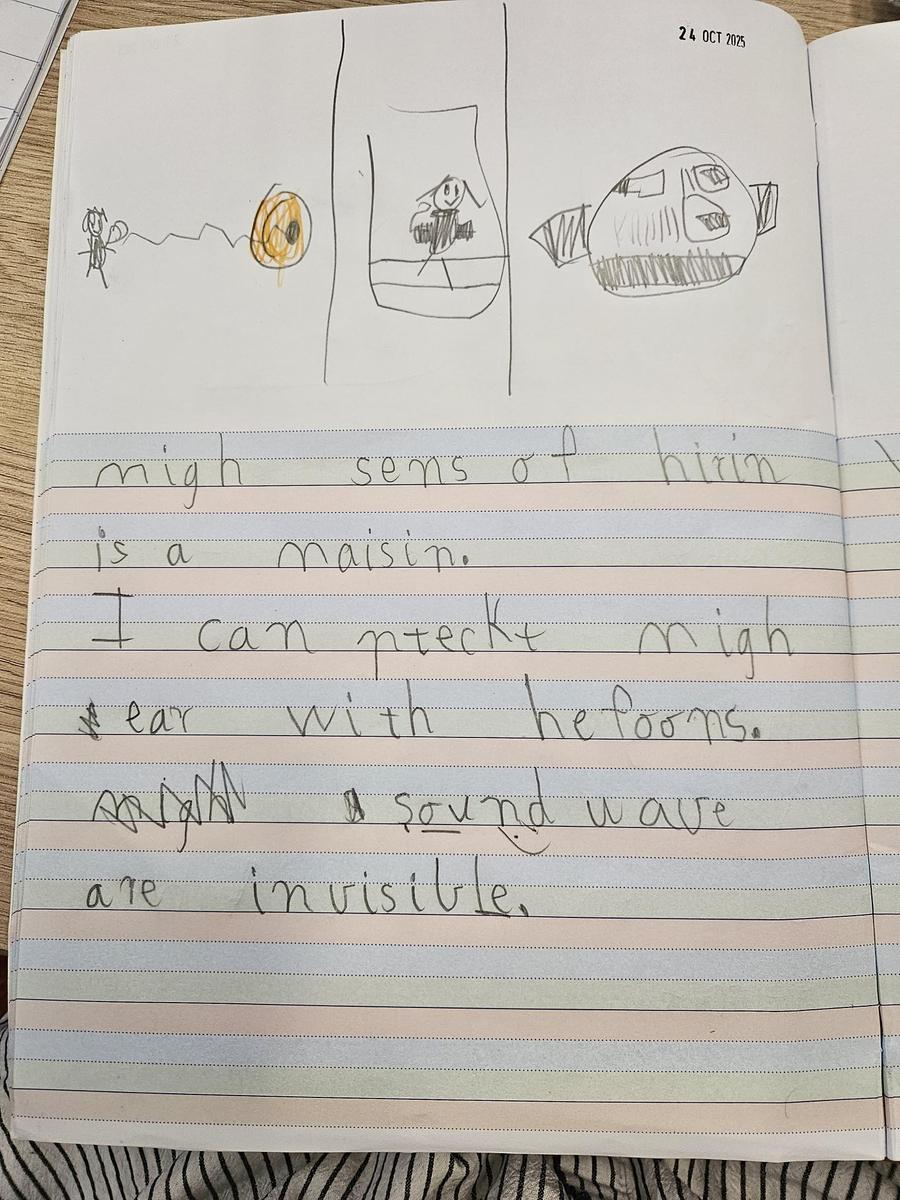 24 OCT 2025
migh sens of hirin
is a maisin.
I can pteckt migh
ear with hefoons.
sound wave
are invisible.